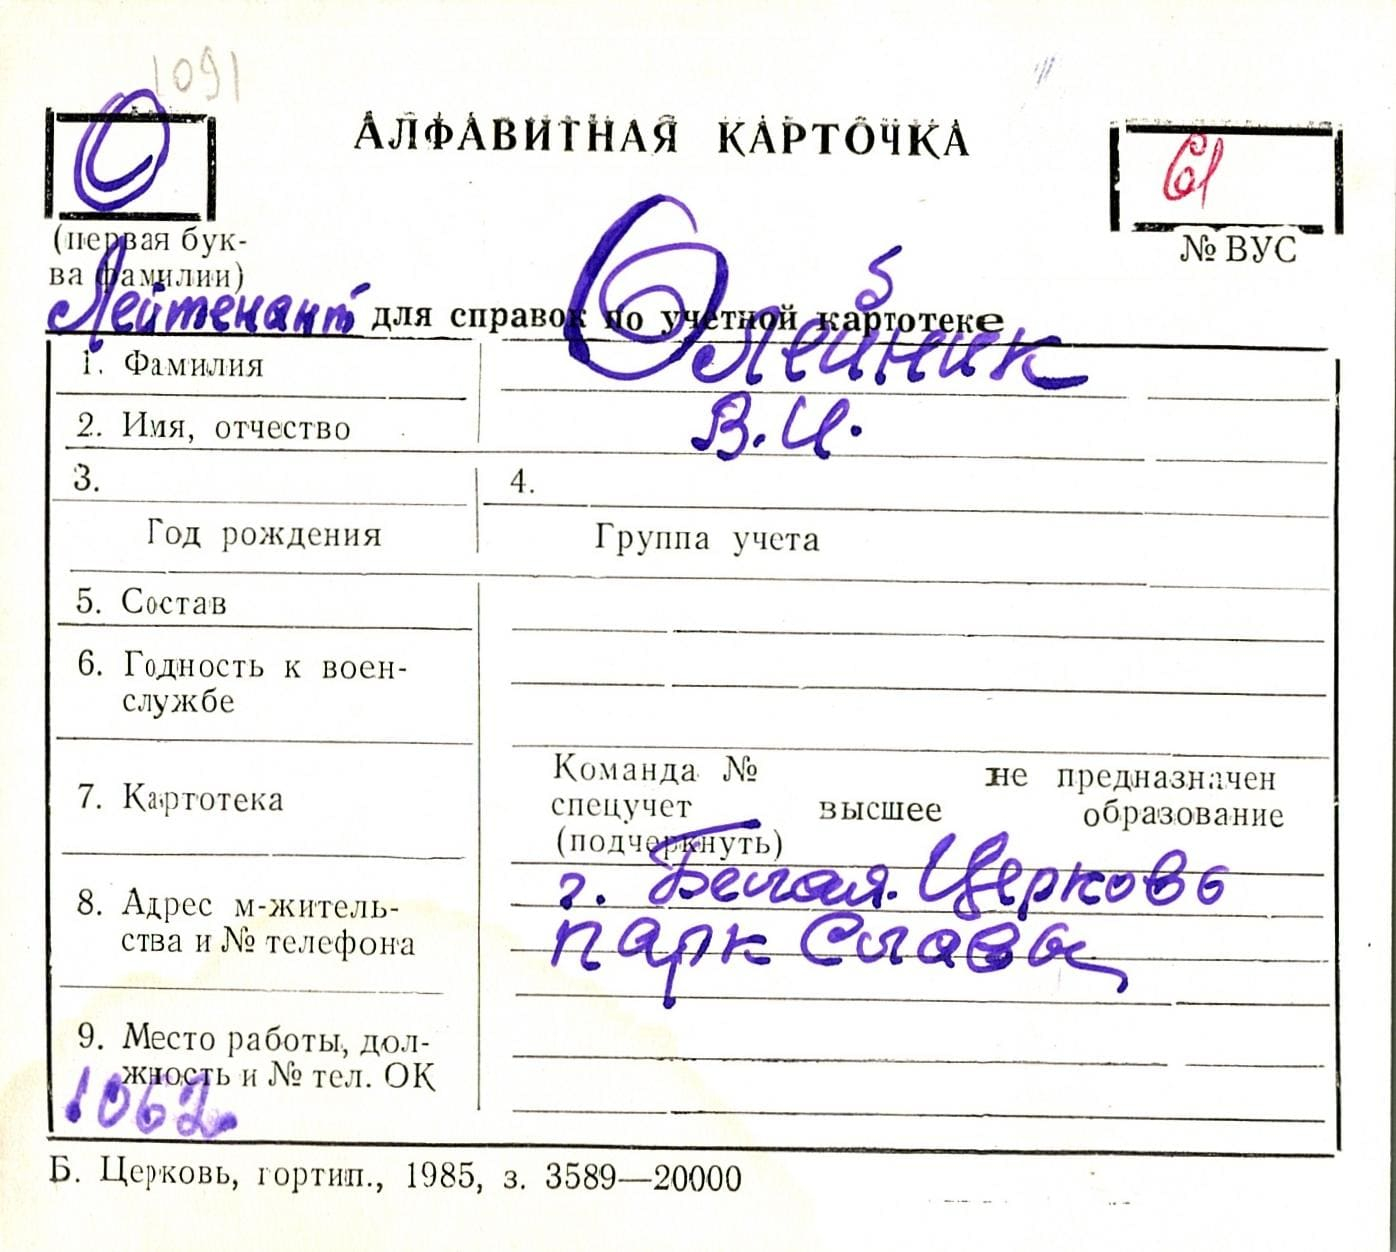 1091
О
АЛФАВИТНАЯ КАРТОЧКА
61
(первая бук-
ва фамилии)
№ ВУС
Лейтенант для справок по учетной картотеке
1. Фамилия Олейник
2. Имя, отчество В. И.
3. 4.
Год рождения Группа учета
5. Состав
6. Годность к воен-
службе
7. Картотека
Команда № не предназначен
спецучет высшее образование
(подчеркнуть)
8. Адрес м-житель-
ства и № телефона
г. Белая Церковь
парк Славы
9. Место работы, дол-
жность и № тел. ОК
1062
Б. Церковь, гортип., 1985, з. 3589—20000